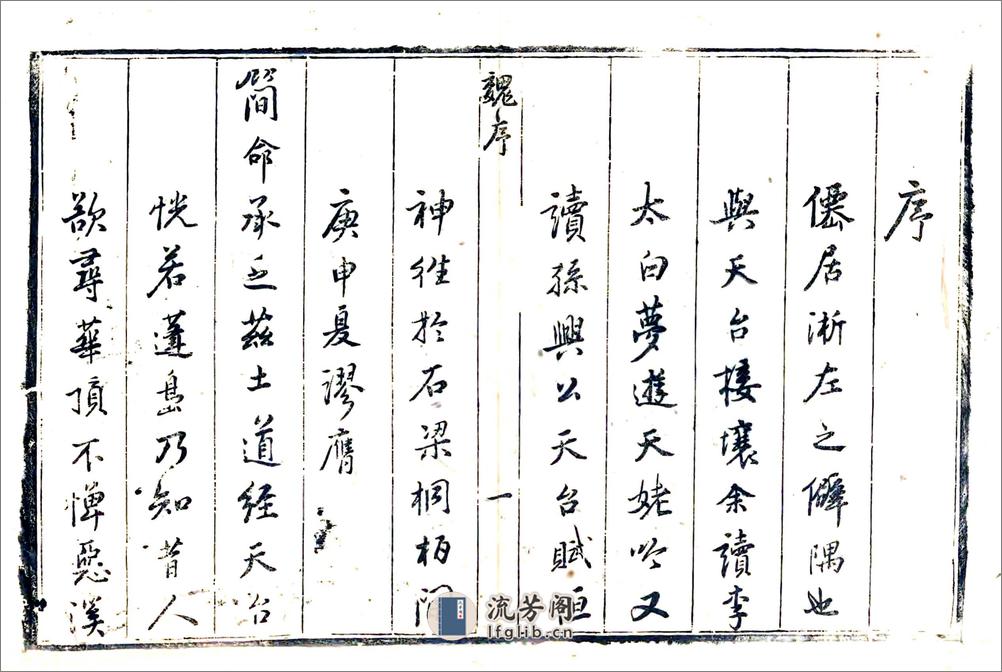 序
僊居淅左之僻隅也
與天台接壤余讀李
太白夢遊天姥吟又
讀孫興公天台賦恒
魏序
一
神徃於石梁桐柏間
庚申夏謬膺
簡命承乏茲土道經天台
恍若蓬島乃知昔人
欲尋華頂不憚惡溪
流芳阁
lfglib.cn